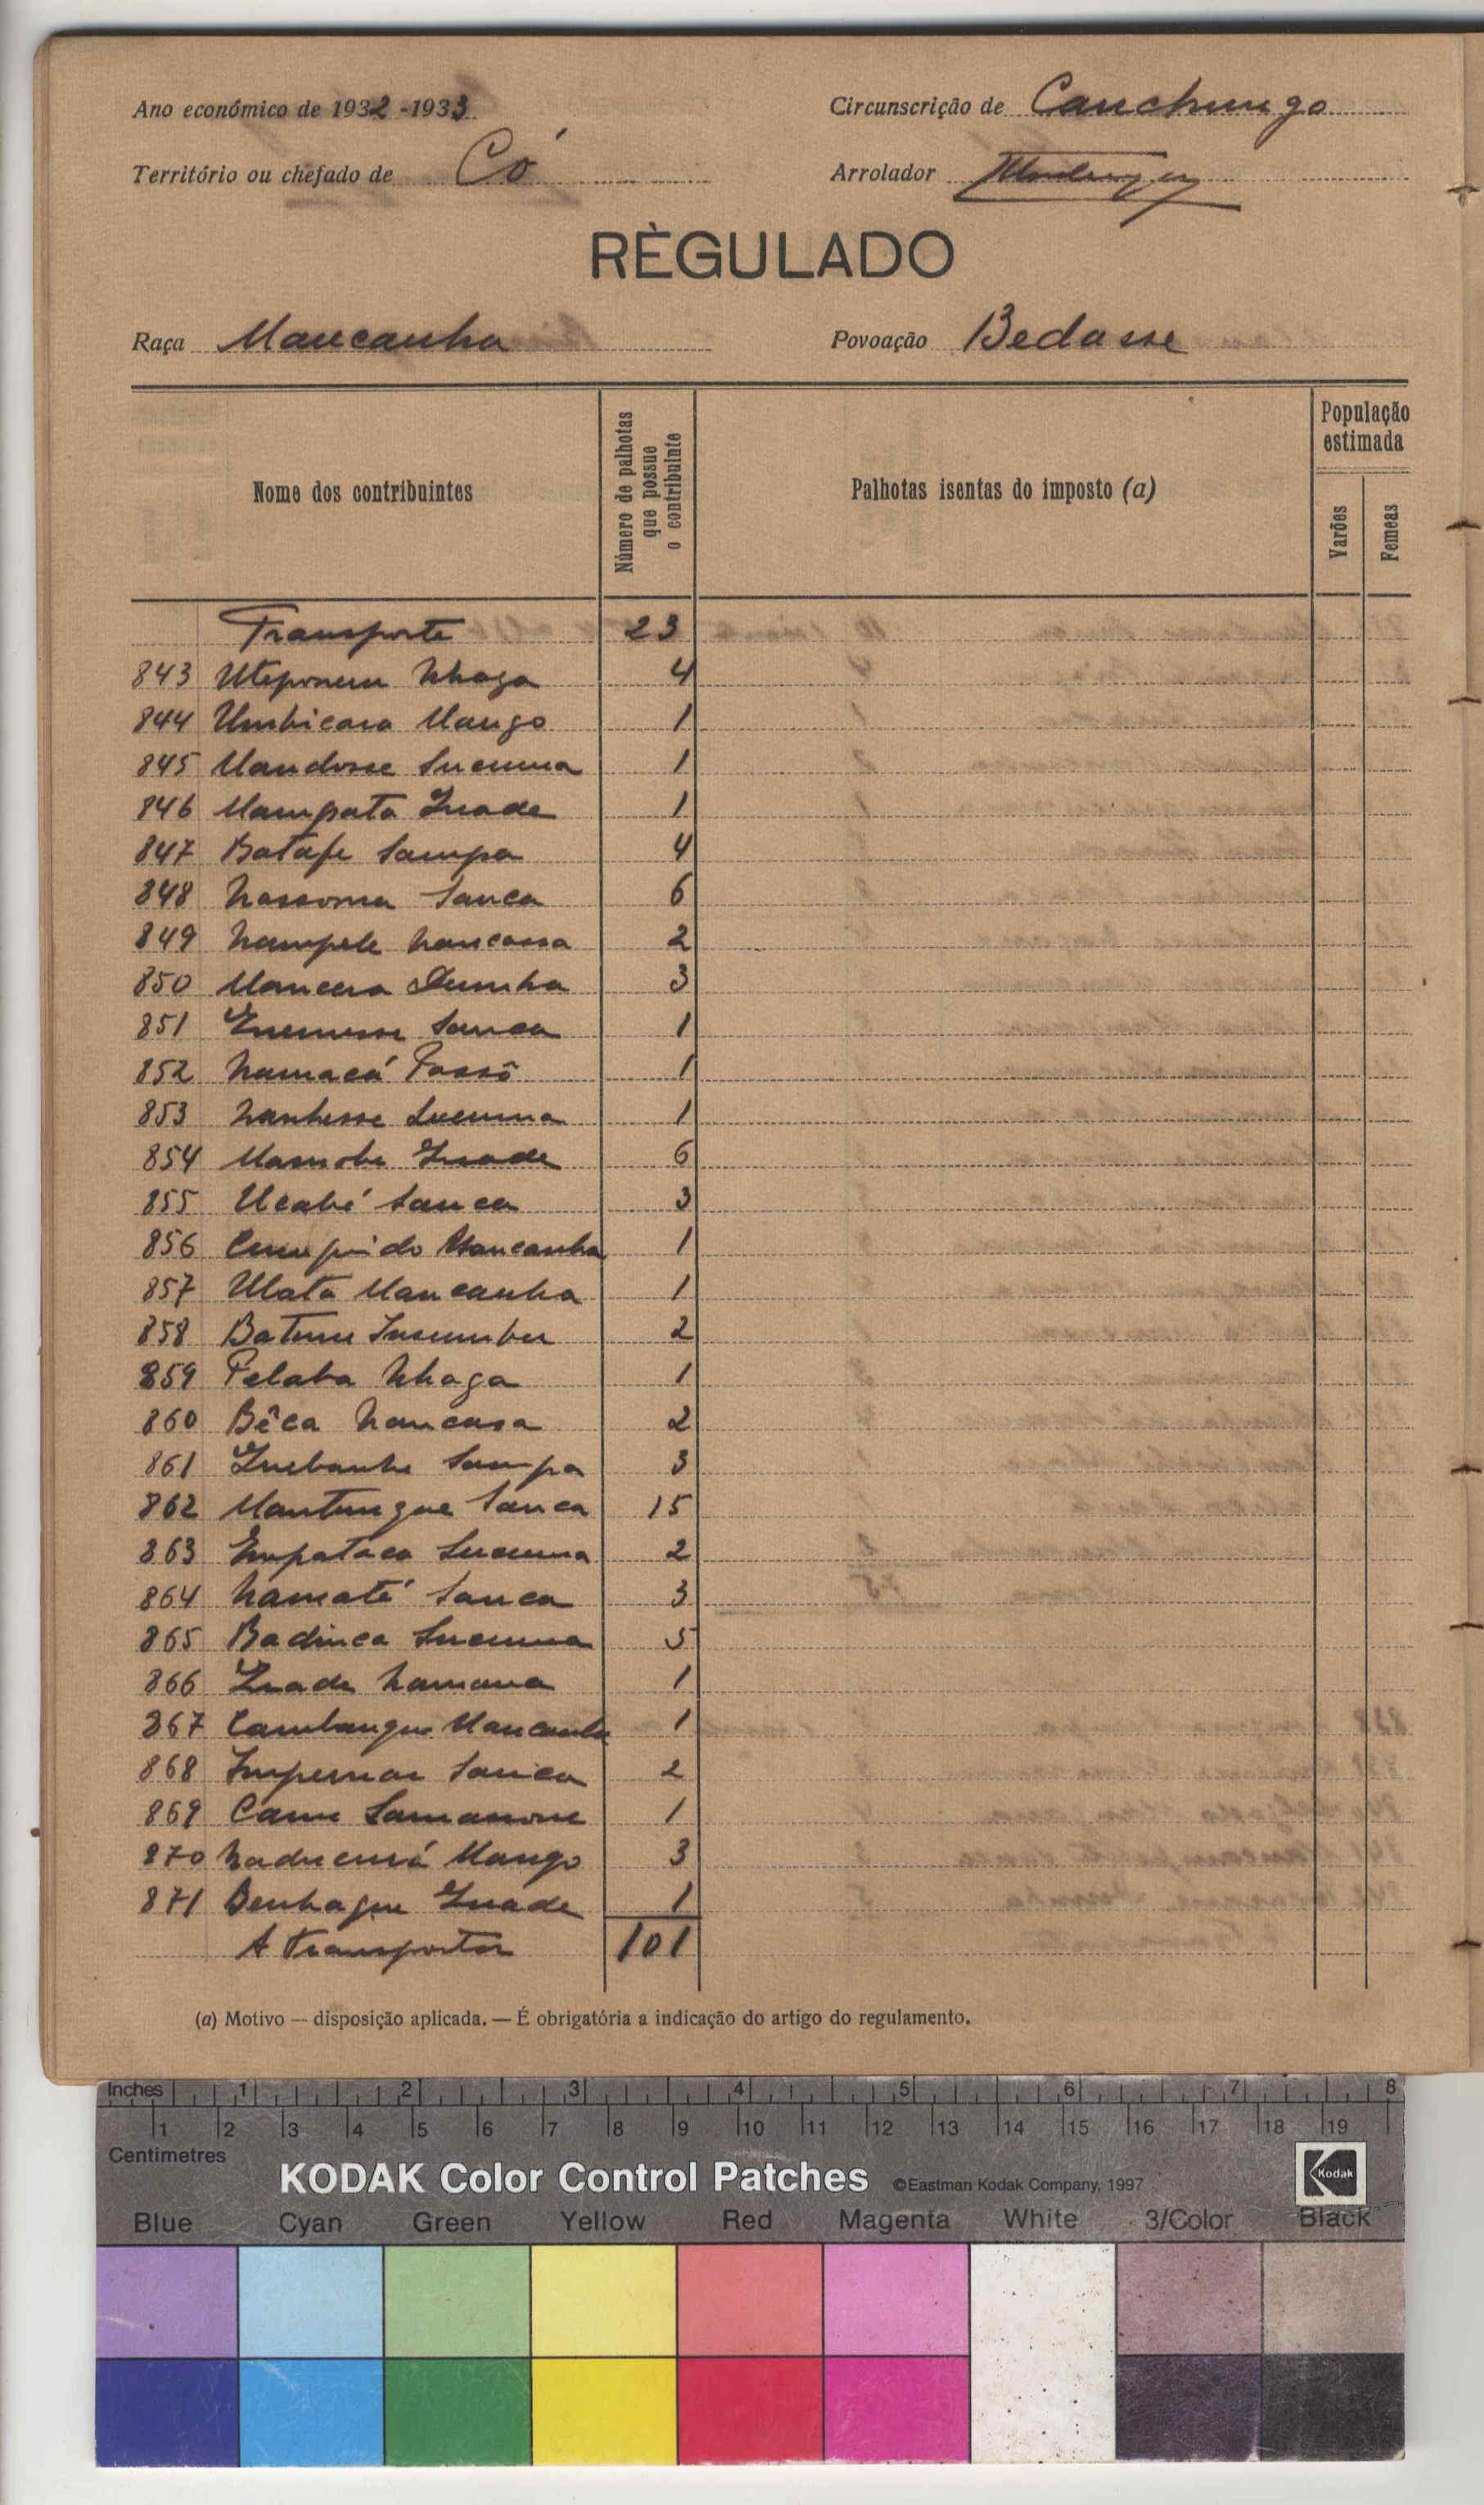 Ano económico de 1932-1933
Circunscrição de Canchungo
Território ou chefado de Có
Arrolador
RÈGULADO
Raça Mancanha
Povoação Bedasse
Nome dos contribuintes
Número de palhotas que possue o contribuinte
Palhotas isentas do imposto (a)
População estimada
Varões
Femeas
Transporte 23
843 Uteponem Nhaga 4
844 Umbicara Mango 1
845 Mandosse Sucuma 1
846 Mampata Inade 1
847 Batafe Sampa 4
848 Nassoma Sanca 6
849 Nampele Nancassa 2
850 Mancera Dumha 3
851 Sanca 1
852 Namacá Fassô 1
853 Nanhesse Sucuma 1
854 Mamobe Inade 6
855 Ucabé Sanca 3
856 Cumprido Mancanha 1
857 Ulata Mancanha 1
858 Batum 2
859 Pelaba Nhaga 1
860 Bêca Nancassa 2
861 Inebanhe Sampa 3
862 Mantungue Sanca 15
863 Empataca Sucuma 2
864 Namaté Sanca 3
865 Badinca Sucuma 5
866 Inade Namana 1
867 Cambangue Mancanha 1
868 Impernar Sanca 2
869 Came 1
870 Naducurá Mango 3
871 Benhague Inade 1
A transportar 101
(a) Motivo — disposição aplicada. — É obrigatória a indicação do artigo do regulamento.
Inches 1 2 3 4 5 6 7 8
1 2 3 4 5 6 7 8 9 10 11 12 13 14 15 16 17 18 19
Centimetres
KODAK Color Control Patches ©Eastman Kodak Company, 1997 Kodak
Blue Cyan Green Yellow Red Magenta White 3/Color Black